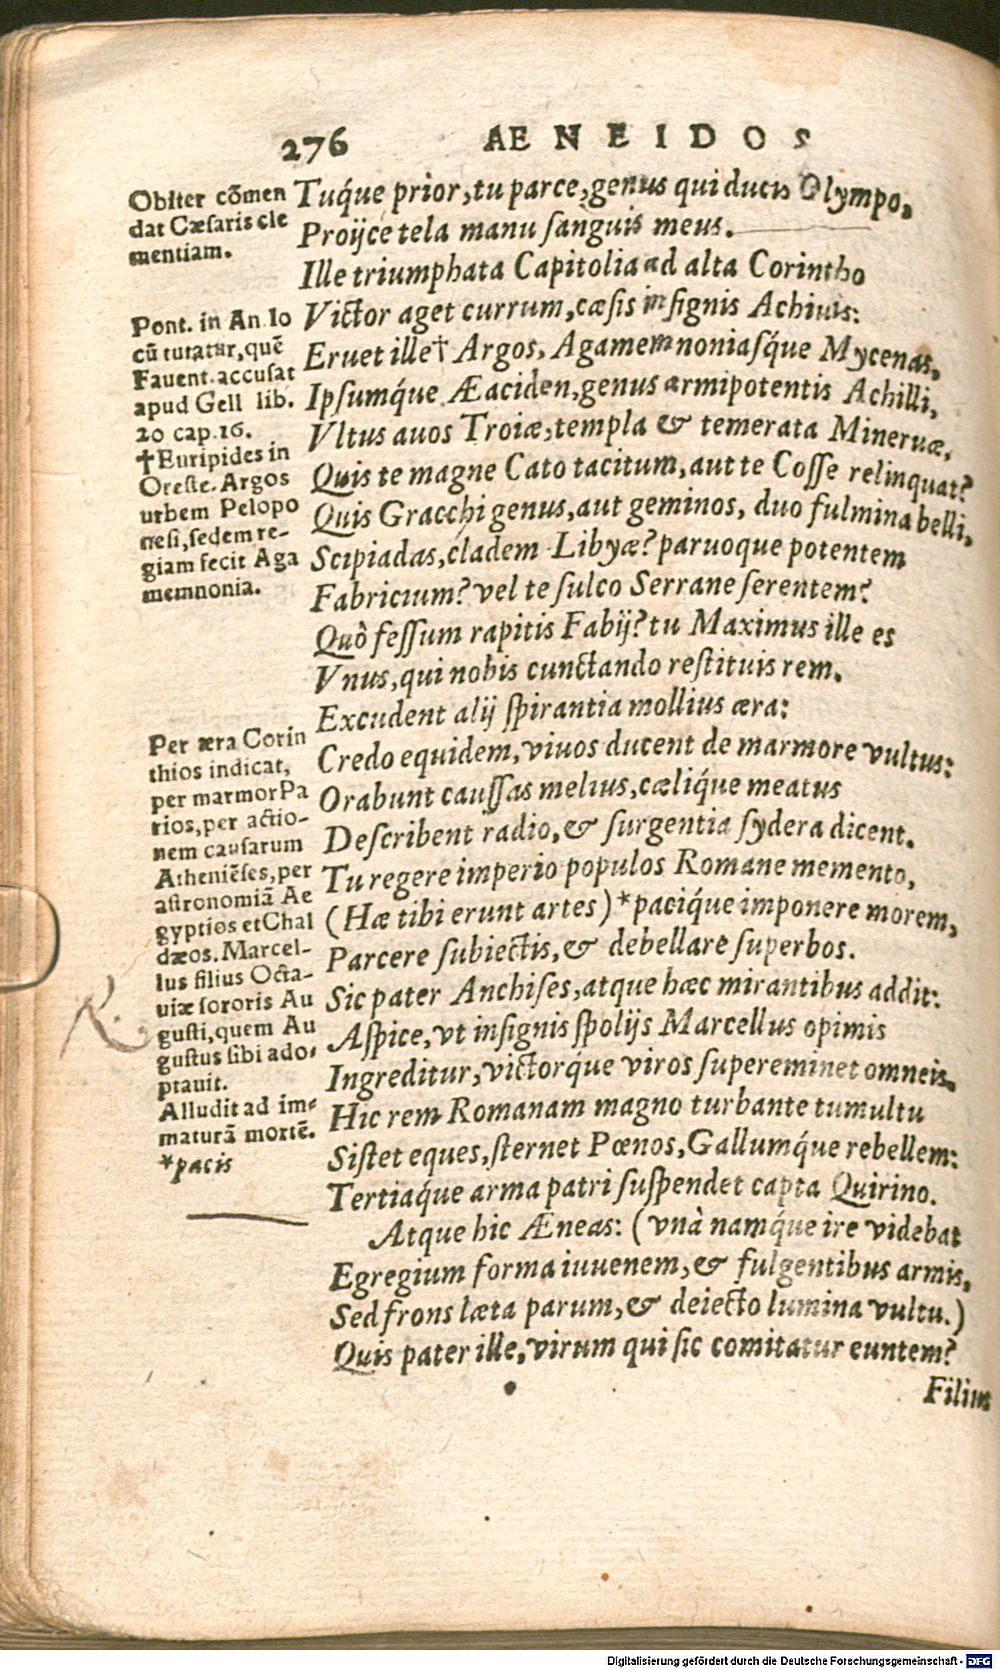 276 AENEIDOS
Obiter cõmen
dat Cæsaris cle
mentiam.
Pont. in An. Io
cũ tutatur, quẽ
Fauent. accusat
apud Gell lib.
20 cap. 16.
†Euripides in
Oreste. Argos
urbem Pelopo
nesi, sedem re-
giam fecit Aga
memnonia.
Per æra Corin
thios indicat,
per marmor Pa
rios, per actio-
nem causarum
Atheniẽses, per
astronomiã Ae
gyptios et Chal
dæos. Marcel-
lus filius Octa-
uiæ sororis Au
gusti, quem Au
gustus sibi ado-
ptauit.
Alludit ad im-
maturã mortẽ.
*pacis
R.
Tuq́ue prior, tu parce, genus qui ducis Olympo,
Proijce tela manu sanguis meus.
Ille triumphata Capitolia ad alta Corintho
Victor aget currum, cæsis insignis Achiuis:
Eruet ille† Argos, Agamemnoniasq́ue Mycenas,
Ipsumq́ue Æaciden, genus armipotentis Achilli,
Vltus auos Troiæ, templa & temerata Mineruæ,
Quis te magne Cato tacitum, aut te Cosse relinquat?
Quis Gracchi genus, aut geminos, duo fulmina belli,
Scipiadas, cladem Libyæ? paruoque potentem
Fabricium? vel te sulco Serrane serentem?
Quô fessum rapitis Fabij? tu Maximus ille es
Vnus, qui nobis cunctando restituis rem.
Excudent alij spirantia mollius æra:
Credo equidem, viuos ducent de marmore vultus:
Orabunt caussas melius, cæliq́ue meatus
Describent radio, & surgentia sydera dicent.
Tu regere imperio populos Romane memento,
(Hæ tibi erunt artes) *paciq́ue imponere morem,
Parcere subiectis, & debellare superbos.
Sic pater Anchises, atque hæc mirantibus addit:
Aspice, vt insignis spolijs Marcellus opimis
Ingreditur, victorq́ue viros supereminet omneis.
Hic rem Romanam magno turbante tumultu
Sistet eques, sternet Pœnos, Gallumq́ue rebellem:
Tertiaq́ue arma patri suspendet capta Quirino.
Atque hic Æneas: (vnà namq́ue ire videbat
Egregium forma iuuenem, & fulgentibus armis,
Sed frons læta parum, & deiecto lumina vultu.)
Quis pater ille, virum qui sic comitatur euntem?
Filius
Digitalisierung gefördert durch die Deutsche Forschungsgemeinschaft - DFG